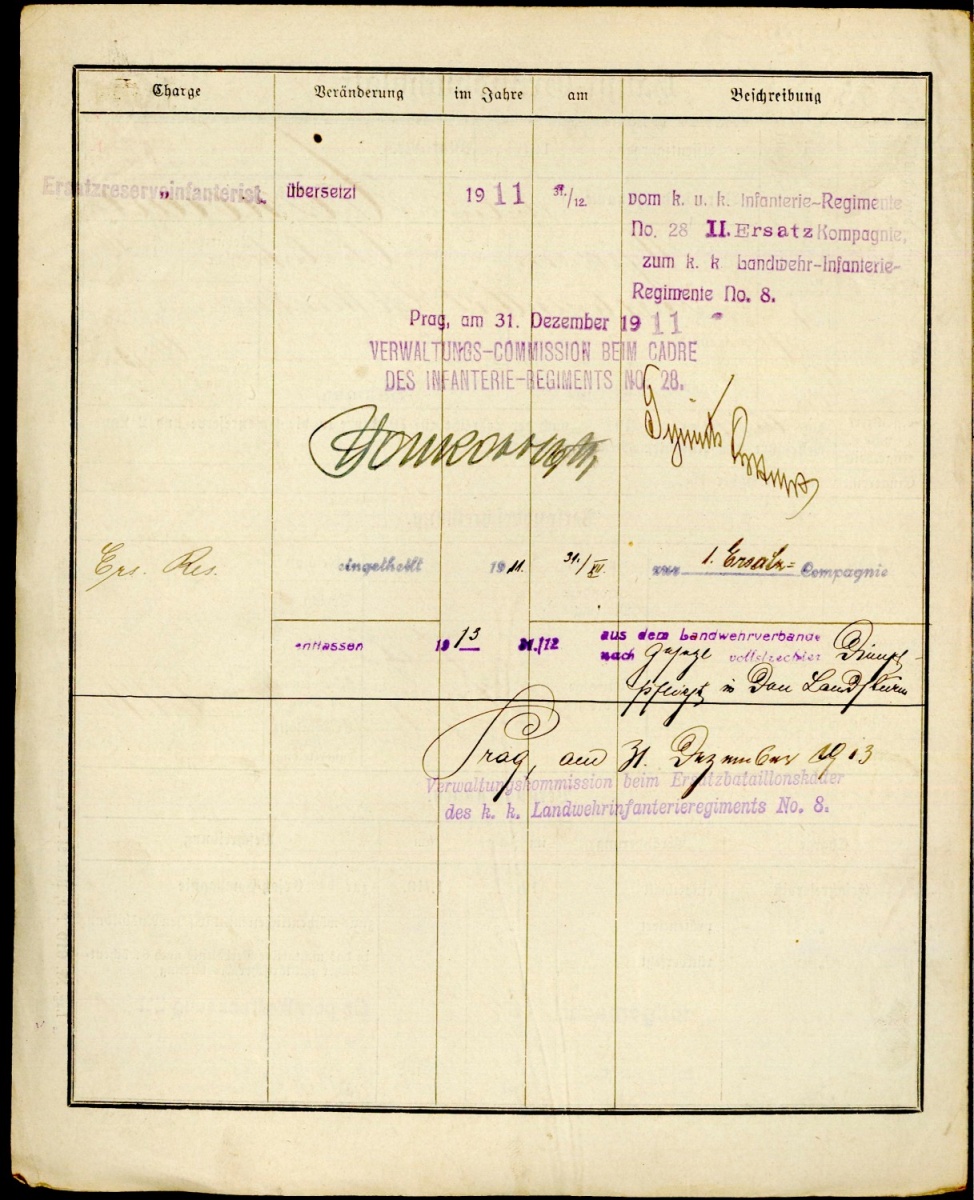 Charge Veränderung im Jahre am Beschreibung
Ersatzreserveinfanterist. „ übersetzt 1911 31./12. vom k. u. k. Infanterie-Regimente
No. 28 II. Ersatz Kompagnie,
zum k. k. Landwehr-Infanterie-
Regimente No. 8.
Prag, am 31. Dezember 1911
VERWALTUNGS-COMMISSION BEIM CADRE
DES INFANTERIE-REGIMENTS NO. 28.
Ers. Res. eingetheilt 1911. 31./XII. zur 1. Ersatz= Compagnie
entlassen 1913 31./12 aus dem Landwehrverbande
nach vollstreckter Dienst-
pflicht in den Landsturm
Prag, am 31. Dezember 1913
Verwaltungskommission beim Ersatzbataillonskader
des k. k. Landwehrinfanterieregiments No. 8.